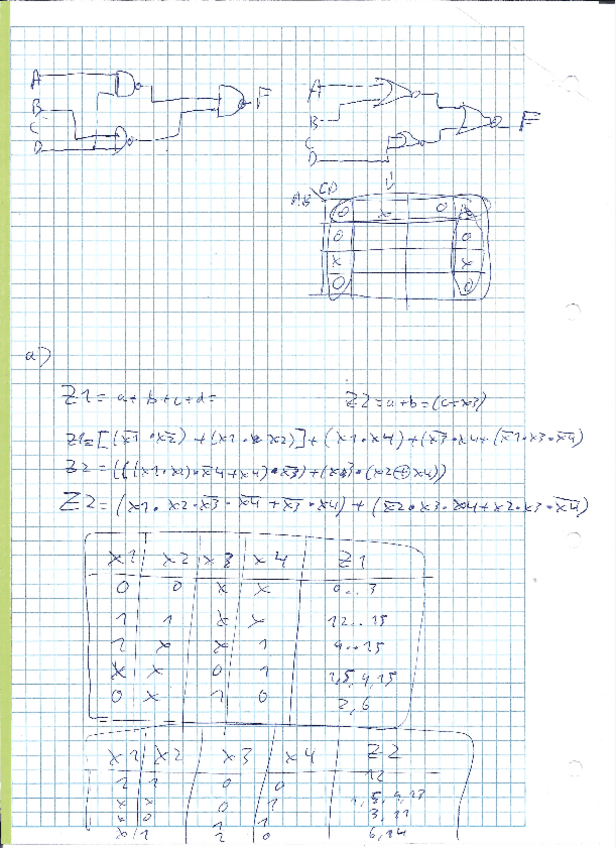 A
B
C
D
F
A
B
C
D
F
AB CD
0 x 0
0 0
x x
0 0
a)
Z1 = a + b + c + d =
Z2 = a + b = (c = x3)
Z1 = [(x̅1̅ · x̅2̅) + (x1 · x2)] + (x1 · x4) + (x̅3̅ · x4 + (x̅1̅ · x3 · x̅4̅)
Z2 = (((x1 · x2) · x̅4̅ + x4) · x̅3̅) + (x3) · (x2 ⊕ x4))
Z2 = (x1 · x2 · x̅3̅ · x̅4̅ + x̅3̅ · x4) + (x̅2̅ · x3 · x4 + x2 · x3 · x̅4̅)
x1 x2 x3 x4 Z1
0 0 x x 0..3
1 1 x x 12..15
1 x x 1 9..15
x x 0 1 1,5,9,15
0 x 1 0 2,6
x1 x2 x3 x4 Z2
1 1 0 0 12
x x 0 1 1,5,9,13
x 0 1 1 3,11
x 1 1 0 6,14